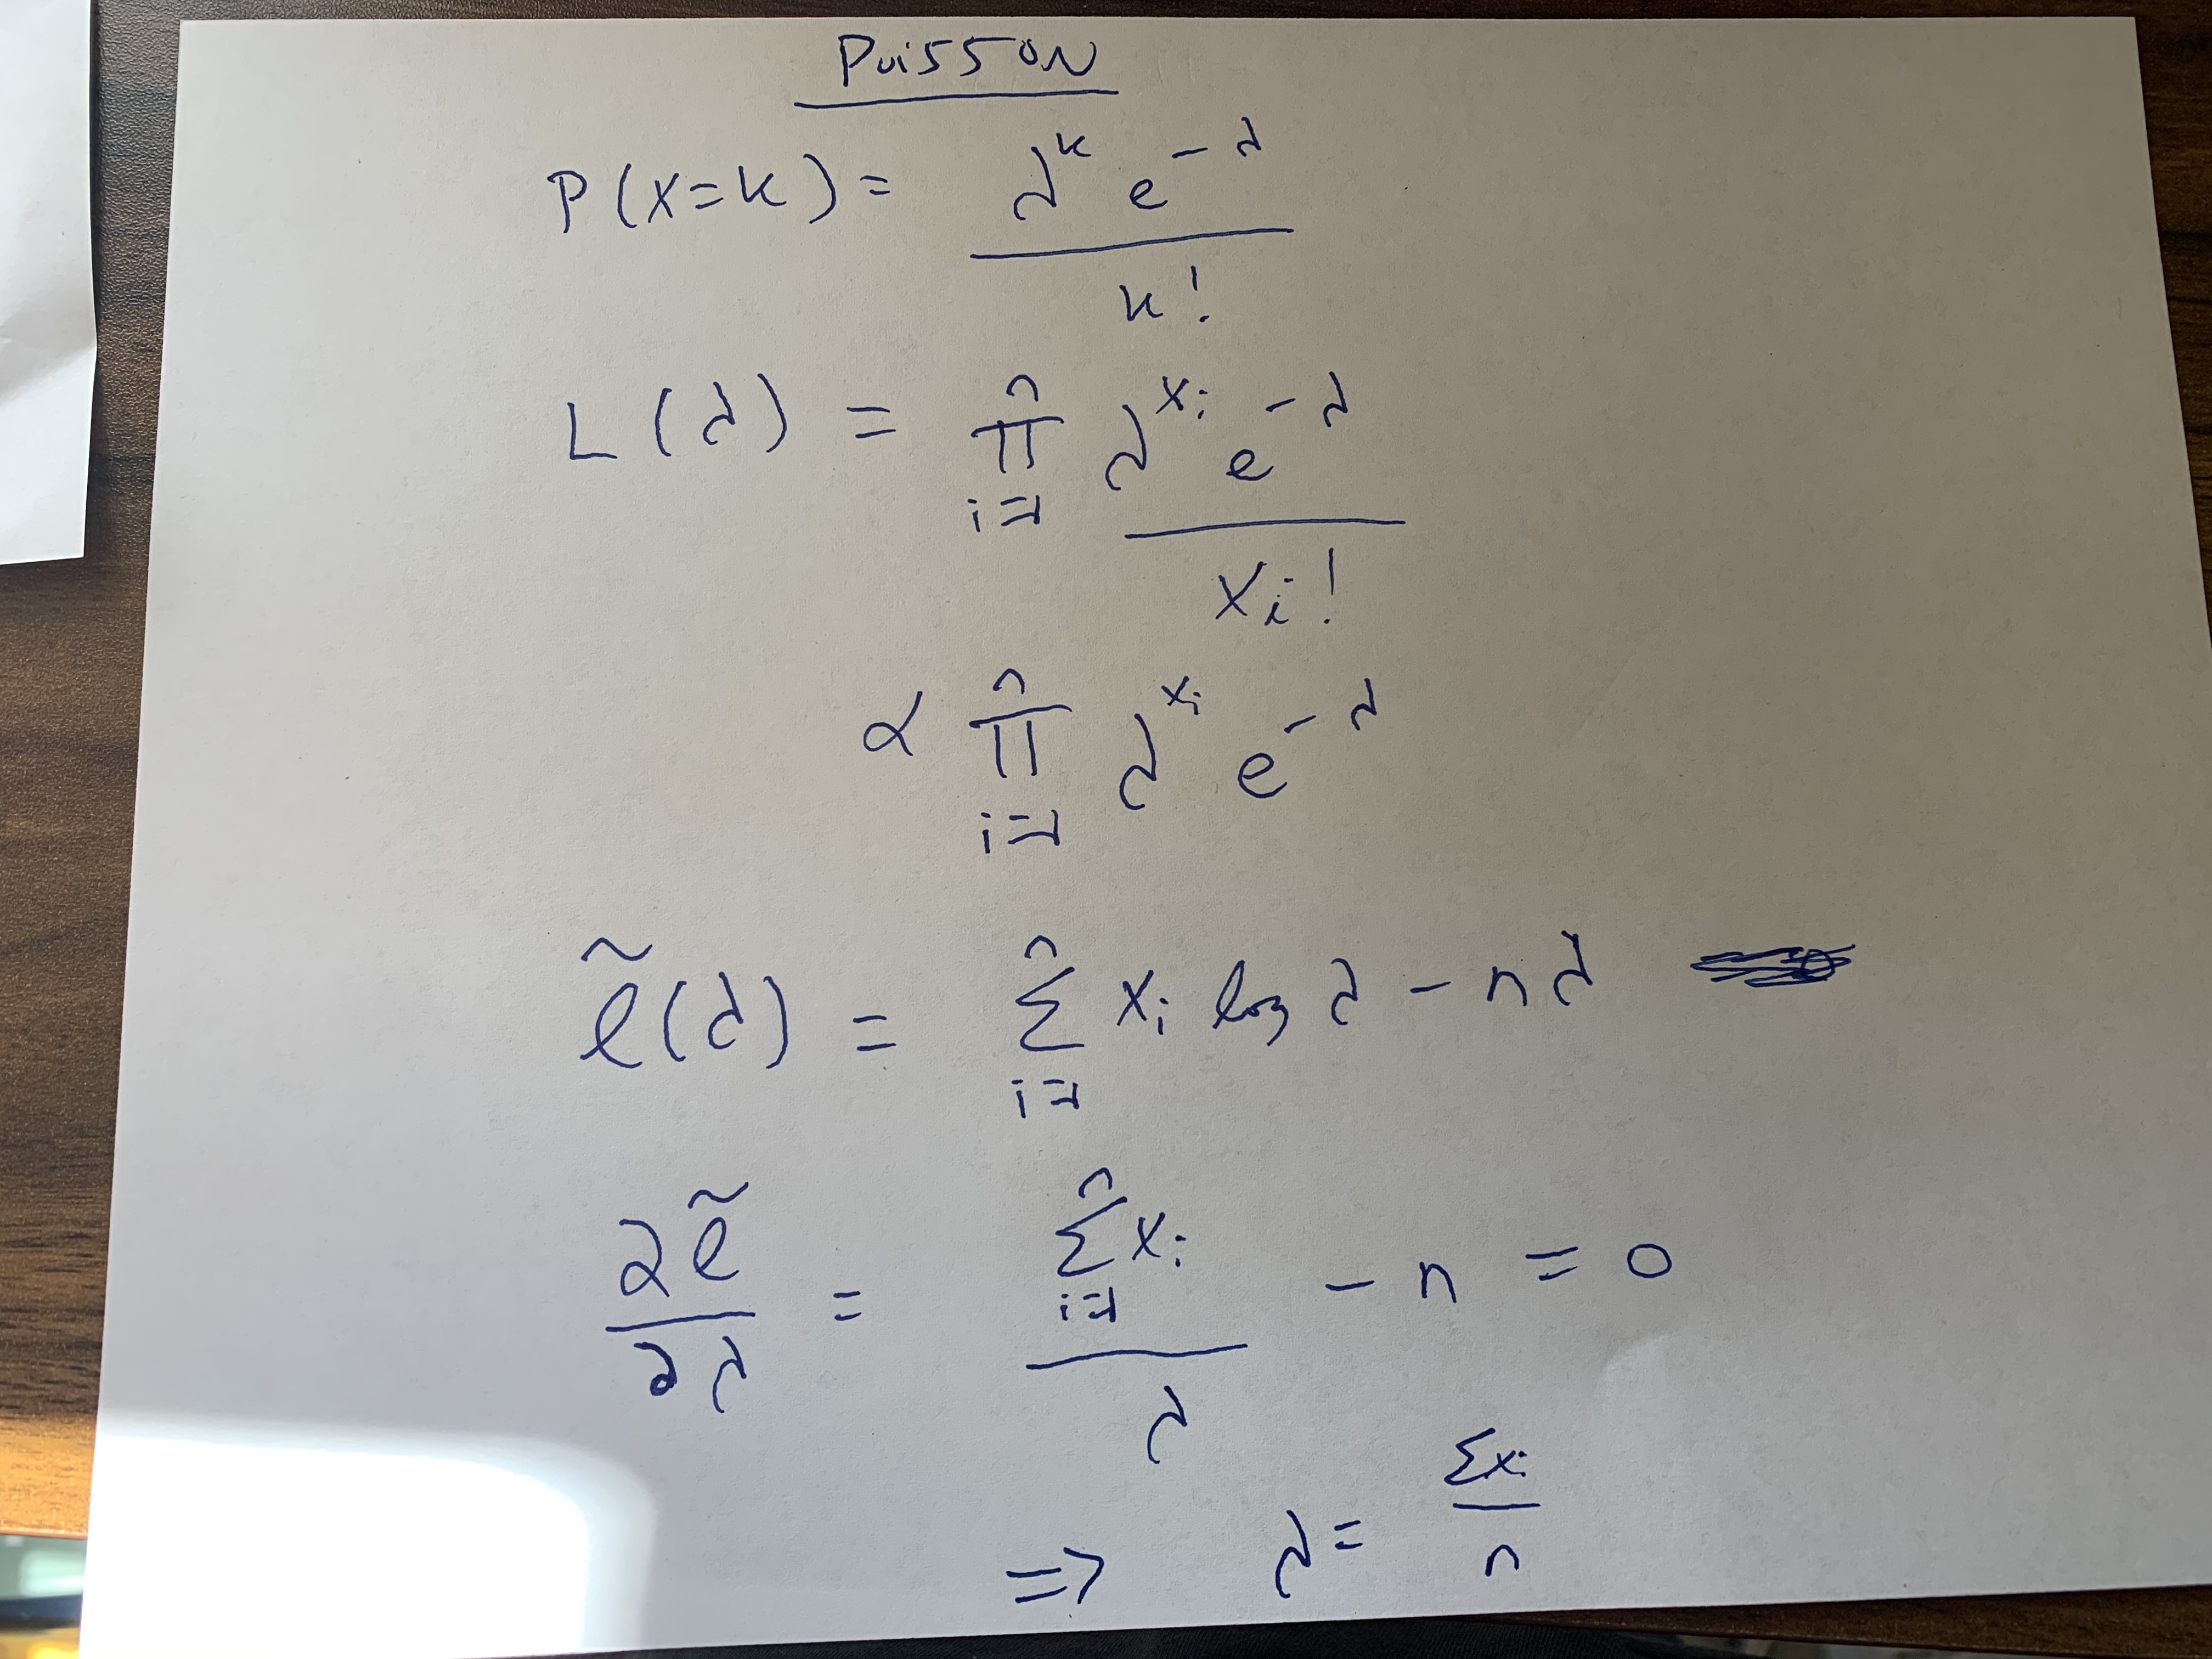 Poisson
P(X=k) = λ^k e^-λ / k!
L(λ) = n ∏ i=1 λ^xi e^-λ / xi!
∝ n ∏ i=1 λ^xi e^-λ
ℓ̃(λ) = n ∑ i=1 xi log λ - nλ
∂ℓ̃/∂λ = n ∑ i=1 xi / λ - n = 0
=> λ = ∑xi / n